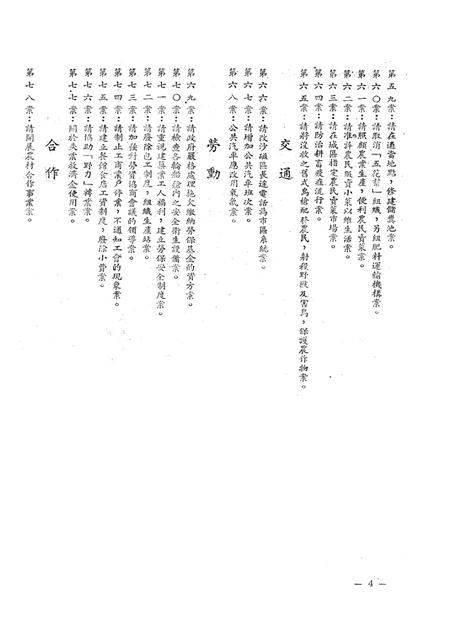 第五九案：請在適當地點，修建儲糞池案。
第六〇案：請取消「五花幫」組織，另組肥料運輸機構案。
第六一案：請照顧農業生產，便利農民賣菜案。
第六二案：請准許農民販賣小菜以維生活案。
第六三案：請在城區指定農民賣菜市場案。
第六四案：請防治耕畜瘟疫流行案。
第六五案：請將沒收之舊式鳥槍配發農民，射殺野獸及害鳥，保護農作物案。
交通
第六六案：請改沙磁區長途電話為市區系統案。
第六七案：請增加公共汽車班次案。
第六八案：公共汽車應改用氣案。
勞動
第六九案：請政府嚴格處理拖欠繳納勞保基金的資方案。
第七〇案：請檢查各輪船艙內之安全衛生設備案。
第七一案：請重視建築工人福利，建立勞保安全制度案。
第七二案：請廢除包工制度，組織生產站案。
第七三案：請加強對勞資協商會議的領導案。
第七四案：請制止工商業戶停業，不通知工會的現象案。
第七五案：請建立餐館食店工資制度，廢除小費案。
第七六案：請協助「野力」轉業案。
第七七案：關於失業救濟金使用案。
合作
第七八案：請開展農村合作事業案。
— 4 —